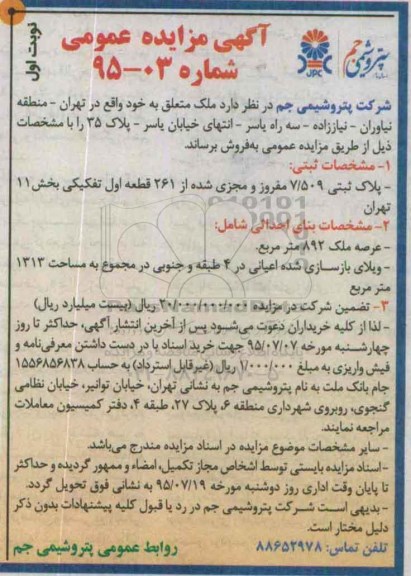 آگهی مزایده عمومی
شماره ۰۳-۹۵
نوبت اول
JPC
پتروشیمی جم
شرکت پتروشیمی جم در نظر دارد ملک متعلق به خود واقع در تهران - منطقه
نیاوران - نیاززاده - سه راه یاسر - انتهای خیابان یاسر - پلاک ۳۵ را با مشخصات
ذیل از طریق مزایده عمومی به‌فروش برساند.
۱- مشخصات ثبتی:
- پلاک ثبتی ۷/۵۰۹ مفروز و مجزی شده از ۲۶۱ قطعه اول تفکیکی بخش ۱۱
تهران
۲- مشخصات بنای احداثی شامل:
- عرصه ملک ۸۹۲ متر مربع.
- ویلای بازسازی شده اعیانی در ۴ طبقه و جنوبی در مجموع به مساحت ۱۳۱۳
متر مربع
۳- تضمین شرکت در مزایده ۲۰/۰۰۰/۰۰۰/۰۰۰ ریال (بیست میلیارد ریال)
- لذا از کلیه خریداران دعوت می‌شود پس از آخرین انتشار آگهی، حداکثر تا روز
چهارشنبه مورخه ۹۵/۰۷/۰۷ جهت خرید اسناد با در دست داشتن معرفی‌نامه و
فیش واریزی به مبلغ ۱/۰۰۰/۰۰۰ ریال (غیرقابل استرداد) به حساب ۱۵۵۶۸۵۶۸۳۸
جام بانک ملت به نام پتروشیمی جم به نشانی تهران، خیابان توانیر، خیابان نظامی
گنجوی، روبروی شهرداری منطقه ۶، پلاک ۲۷، طبقه ۴، دفتر کمیسیون معاملات
مراجعه نمایند.
- سایر مشخصات موضوع مزایده در اسناد مزایده مندرج می‌باشد.
- اسناد مزایده بایستی توسط اشخاص مجاز تکمیل، امضاء و ممهور گردیده و حداکثر
تا پایان وقت اداری روز دوشنبه مورخه ۹۵/۰۷/۱۹ به نشانی فوق تحویل گردد.
- بدیهی است شرکت پتروشیمی جم در رد یا قبول کلیه پیشنهادات بدون ذکر
دلیل مختار است.
تلفن تماس: ۸۸۶۵۲۹۷۸
روابط عمومی پتروشیمی جم